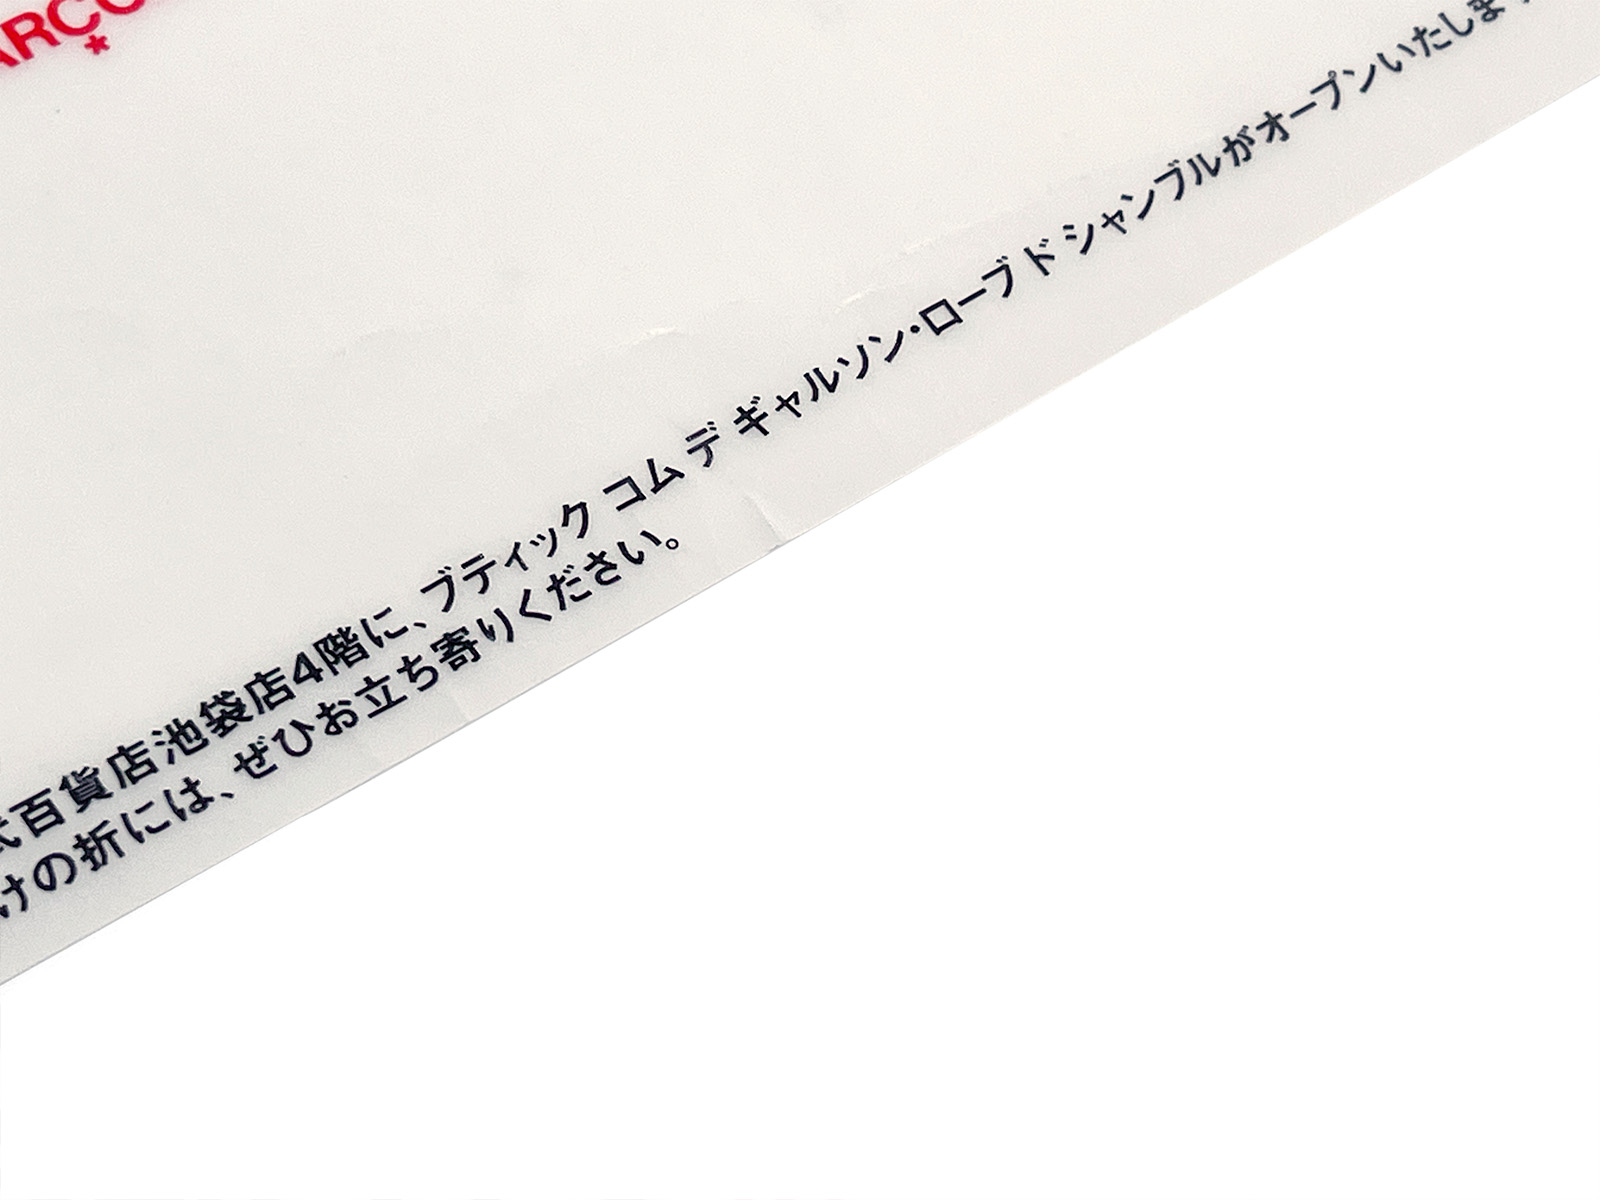 ARCO
*
百貨店池袋店4階に、ブティック コム デ ギャルソン・ローブ ド シャンブルがオープンいたします
けの折には、ぜひお立ち寄りください。